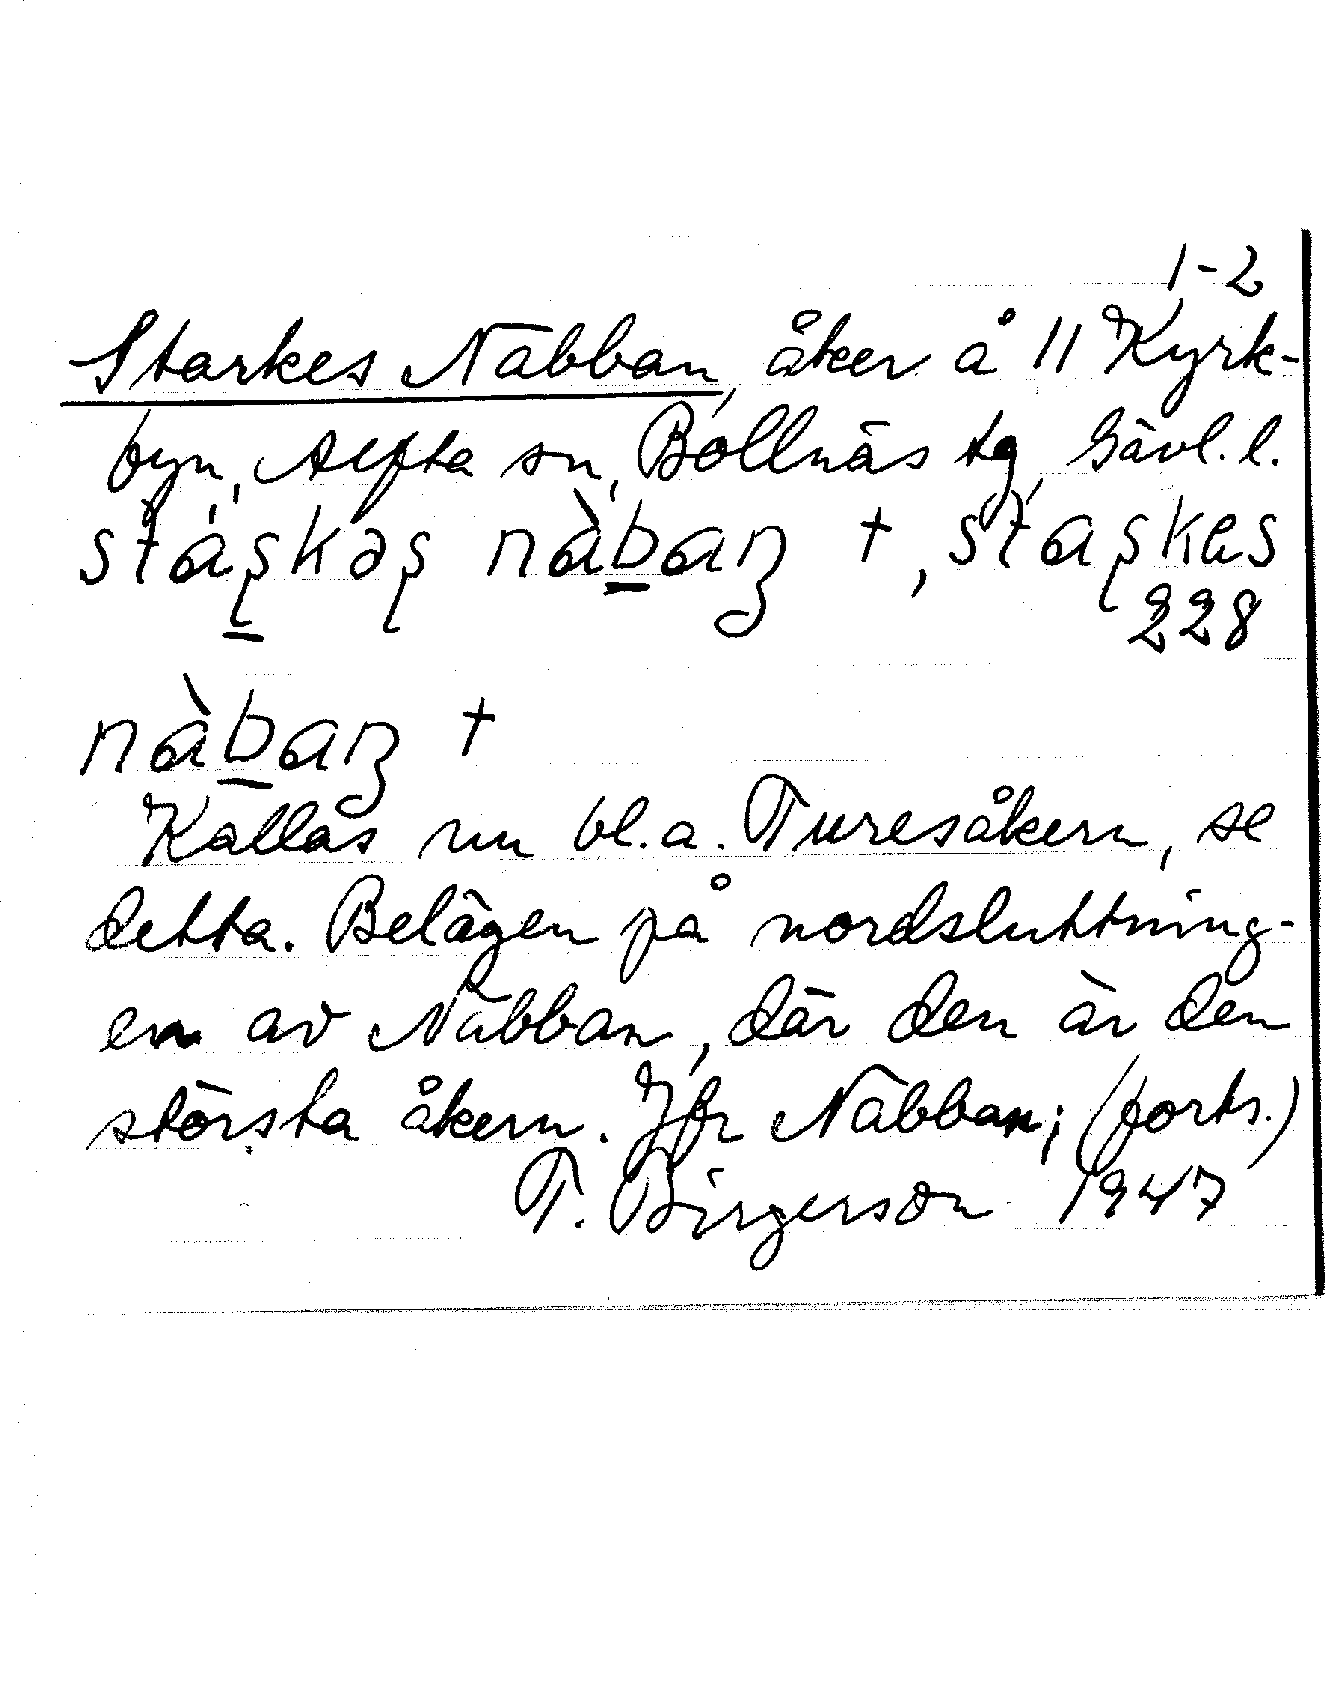 1-2
Starkes Nabban, åker å 11 Kyrk-
byn, Alfta sn, Bollnäs tg, Gävl. l.
stáʂkəʂ nàban̡ †, staʂkes
228
nàban̡ †
Kallas nu bl.a. Turesåkern, se
detta. Belägen på nordsluttning-
en av Nabban, där den är den
största åkern. Jfr Nabban; (forts.)
T. Birgerson 1947